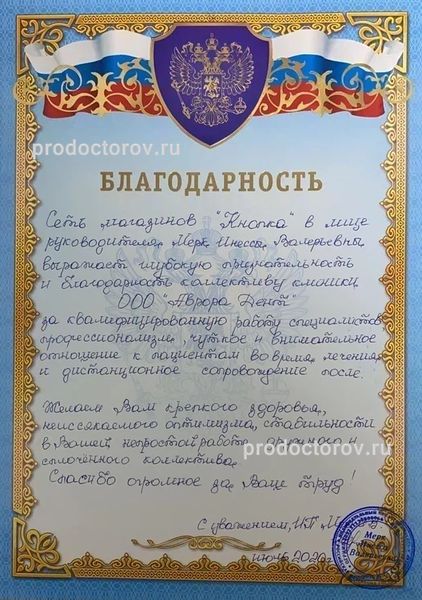 prodoctorov.ru
БЛАГОДАРНОСТЬ
Сеть магазинов "Кнопка" в лице
руководителя Мерк Инессы Валерьевны
выражает глубокую признательность
и благодарность коллективу клиники
ООО "Аврора Дент"
за квалифицированную работу специалистов,
профессионализм, чуткое и внимательное
отношение к пациентам во время лечения
и дистанционное сопровождение после.
Желаем Вам крепкого здоровья,
неиссекаемого оптимизма, стабильности
в Вашей непростой работе, дружного и
prodoctorov.ru
сплочённого коллектива.
Спасибо огромное за Ваш труд!
С уважением, ИП
Мерк
июнь 2020г